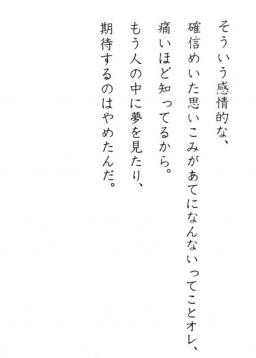 そういう感情的な、
確信めいた思いこみがあてになんないってことオレ、
痛いほど知ってるから。
もう人の中に夢を見たり、
期待するのはやめたんだ。